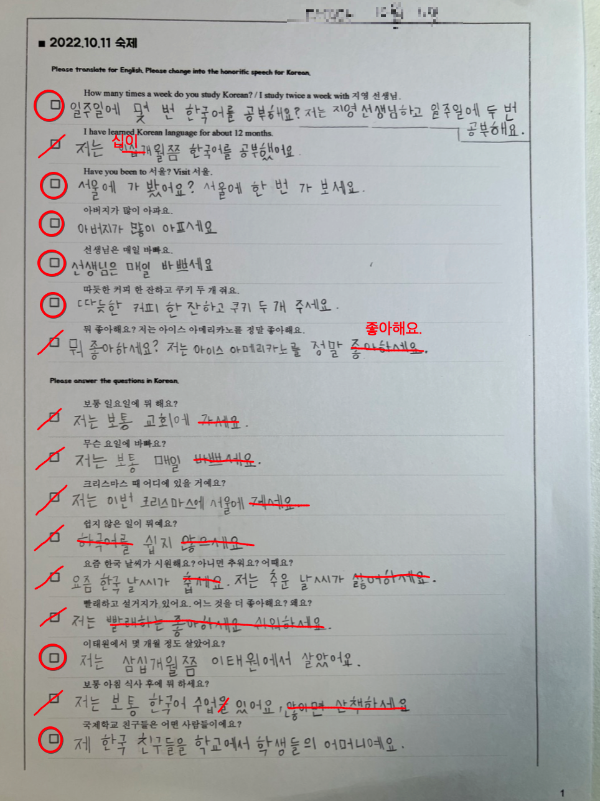 ■ 2022.10.11 숙제
Please translate for English, Please change into the honorific speech for Korean.
How many times a week do you study Korean? / I study twice a week with 지영 선생님.
일주일에 몇 번 한국어를 공부해요? 저는 지영선생님하고 일주일에 두 번
공부해요.
I have learned Korean language for about 12 months.
십이
저는 개월쯤 한국어를 공부했어요
Have you been to 서울? Visit 서울.
서울에 가 봤어요? 서울에 한 번 가 보세요.
아버지가 많이 아파요.
아버지가 많이 아프세요
선생님은 매일 바빠요.
선생님은 매일 바쁘세요
따듯한 커피 한 잔하고 쿠키 두 개 줘요.
따듯한 커피 한 잔하고 쿠키 두 개 주세요.
뭐 좋아해요? 저는 아이스 아메리카노를 정말 좋아해요.
좋아해요.
뭐 좋아하세요? 저는 아이스 아메리카노를 정말 좋아하세요.
Please answer the questions in Korean.
보통 일요일에 뭐 해요?
저는 보통 교회에 가세요.
무슨 요일에 바빠요?
저는 보통 매일 바쁘세요.
크리스마스 때 어디에 있을 거예요?
저는 이번 크리스마스에 서울에 계세요.
쉽지 않은 일이 뭐예요?
한국어를 쉽지 않으세요
요즘 한국 날씨가 시원해요? 아니면 추워요? 어때요?
요즘 한국 날씨가 춥세요. 저는 추운 날씨가 싫어하세요.
빨래하고 설거지가 있어요. 어느 것을 더 좋아해요? 왜요?
저는 빨래하는 좋아하세요 쉬워하세요.
이태원에서 몇 개월 정도 살았어요?
저는 삼십개월쯤 이태원에서 살았어요.
보통 아침 식사 후에 뭐 하세요?
저는 보통 한국어 수업을 있어요, 않아면 산책하세요
국제학교 친구들은 어떤 사람들이에요?
제 한국 친구들을 학교에서 학생들의 어머니예요.
1